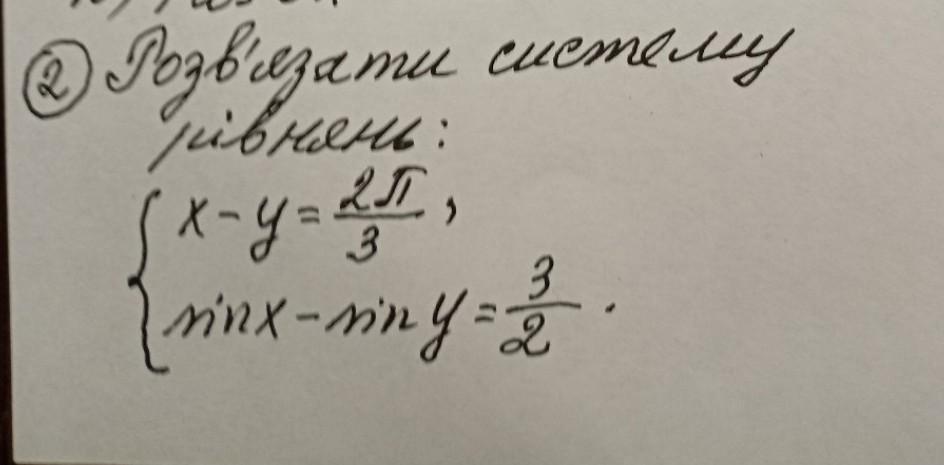 ② Розв'язати систему
рівнянь:
x - y = 2π/3,
sinx - sin y = 3/2.